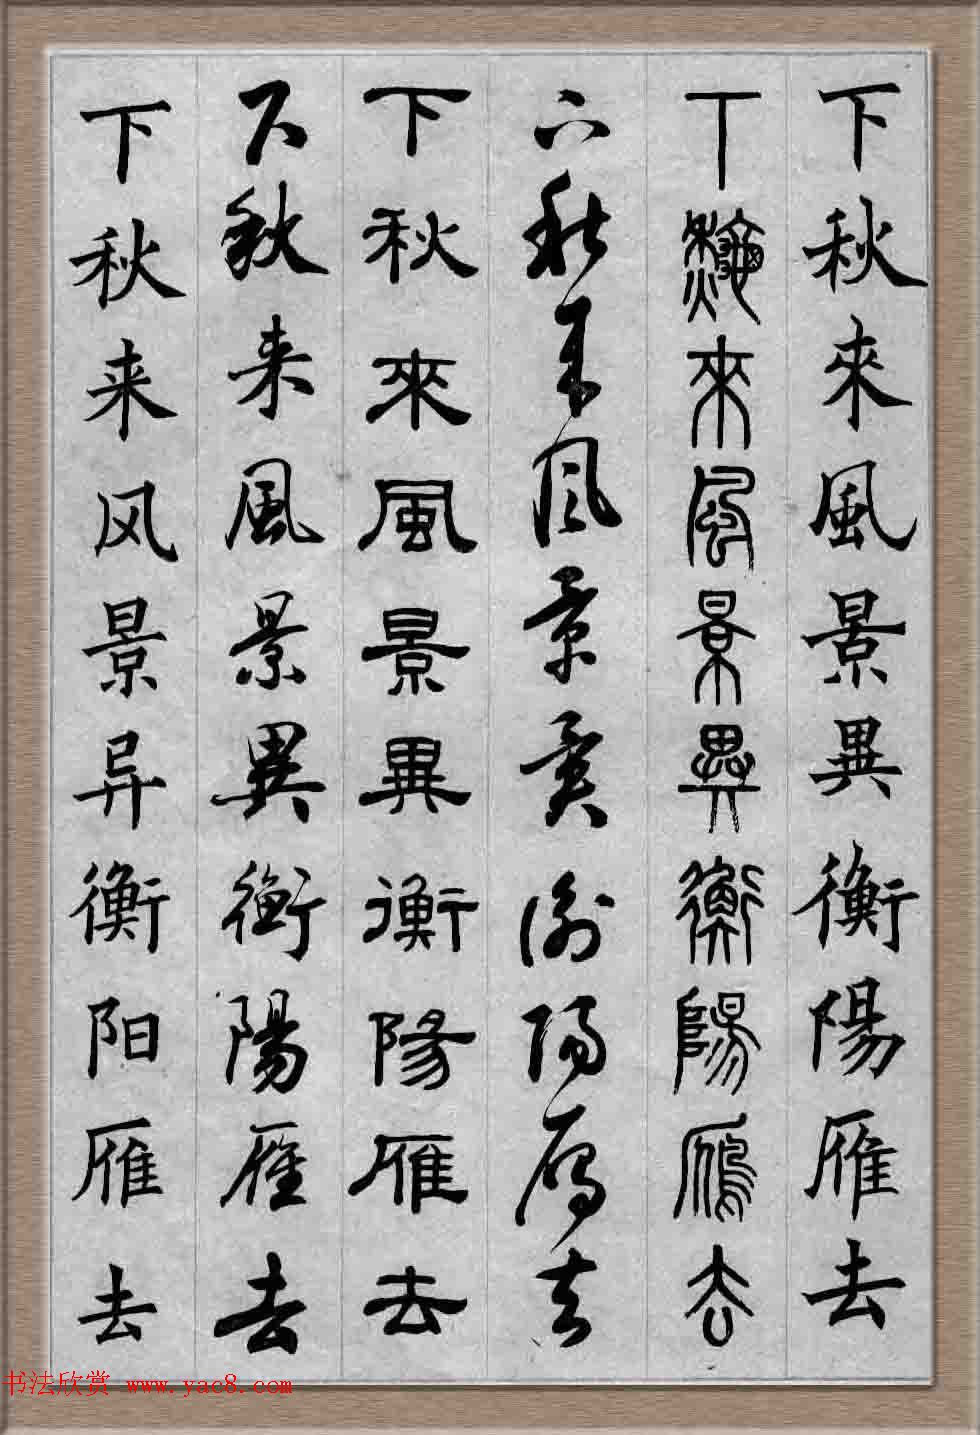 下秋來風景異衡陽雁去
下秋來風景異衡陽雁去
下秋來風景異衡陽雁去
下秋來風景異衡陽雁去
下秋来風景異衡陽雁去
下秋来风景异衡阳雁去
书法欣赏 www.yac8.com